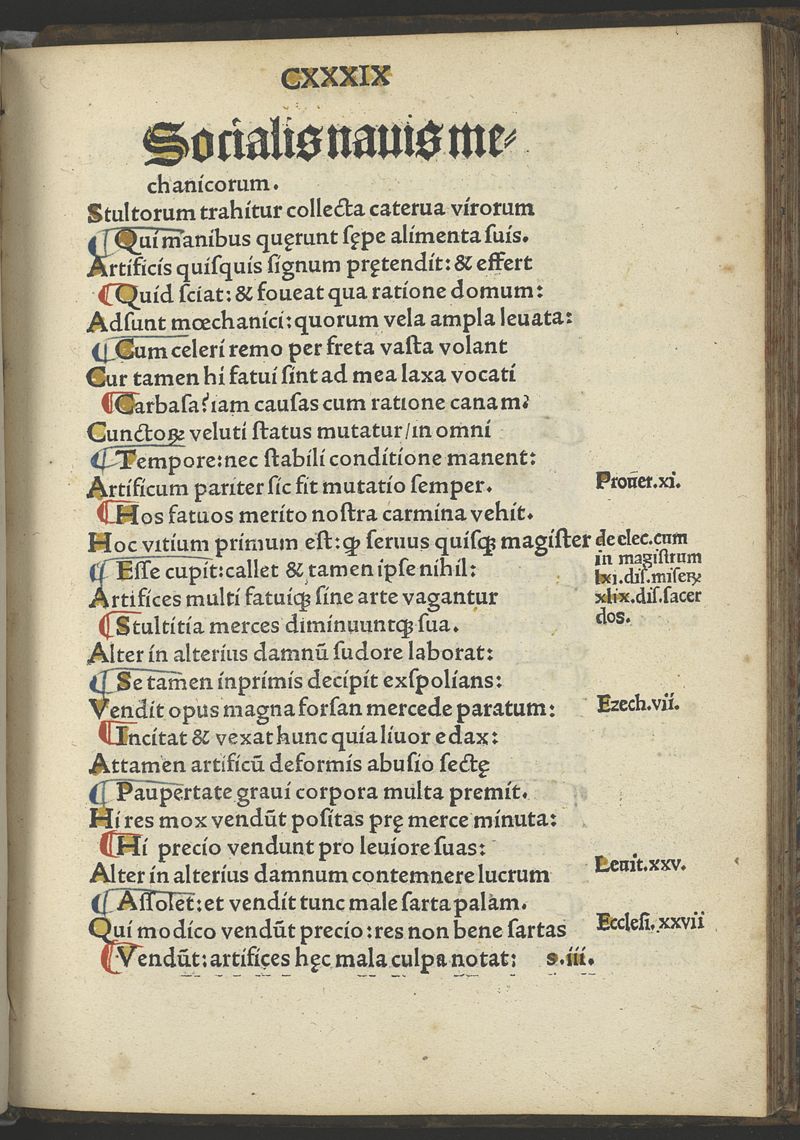 CXXXIX
Socialis nauis me⸗
chanicorum.
Stultorum trahitur collecta caterua virorum
¶ Qui manibus quęrunt sępe alimenta suis.
Artificis quisquis signum prętendit: & effert
¶ Quid sciat: & foueat qua ratione domum:
Adsunt mœchanici: quorum vela ampla leuata:
¶ Cum celeri remo per freta vasta volant
Cur tamen hi fatui sint ad mea laxa vocati
¶ Carbasa? iam causas cum ratione canam?
Cunctoꝝ veluti status mutatur/in omni
¶ Tempore: nec stabili conditione manent:
Artificum pariter sic fit mutatio semper.
Prouer.xi.
¶ Hos fatuos merito nostra carmina vehit.
Hoc vitium primum est: ꝙ seruus quisqꝫ magister
de elec.cum
in magistrum
¶ Esse cupit: callet & tamen ipse nihil:
lxi.dis.miseꝝ
Artifices multi fatuiqꝫ sine arte vagantur
xlix.dis.sacer
dos.
¶ Stultitia merces diminuuntqꝫ sua.
Alter in alterius damnū sudore laborat:
¶ Se tamen inprimis decipit exspolians:
Vendit opus magna forsan mercede paratum:
Ezech.vii.
¶ Incitat & vexat hunc quia liuor edax:
Attamen artificū deformis abusio sectę
¶ Paupertate graui corpora multa premit.
Hi res mox vendūt positas prę merce minuta:
¶ Hi precio vendunt pro leuiore suas:
Alter in alterius damnum contemnere lucrum
Leuit.xxv.
¶ Assolet: et vendit tunc male sarta palam.
Qui modico vendūt precio: res non bene sartas
Ecclesi.xxvii
¶ Vendūt: artifices hęc mala culpa notat:
s.iii.